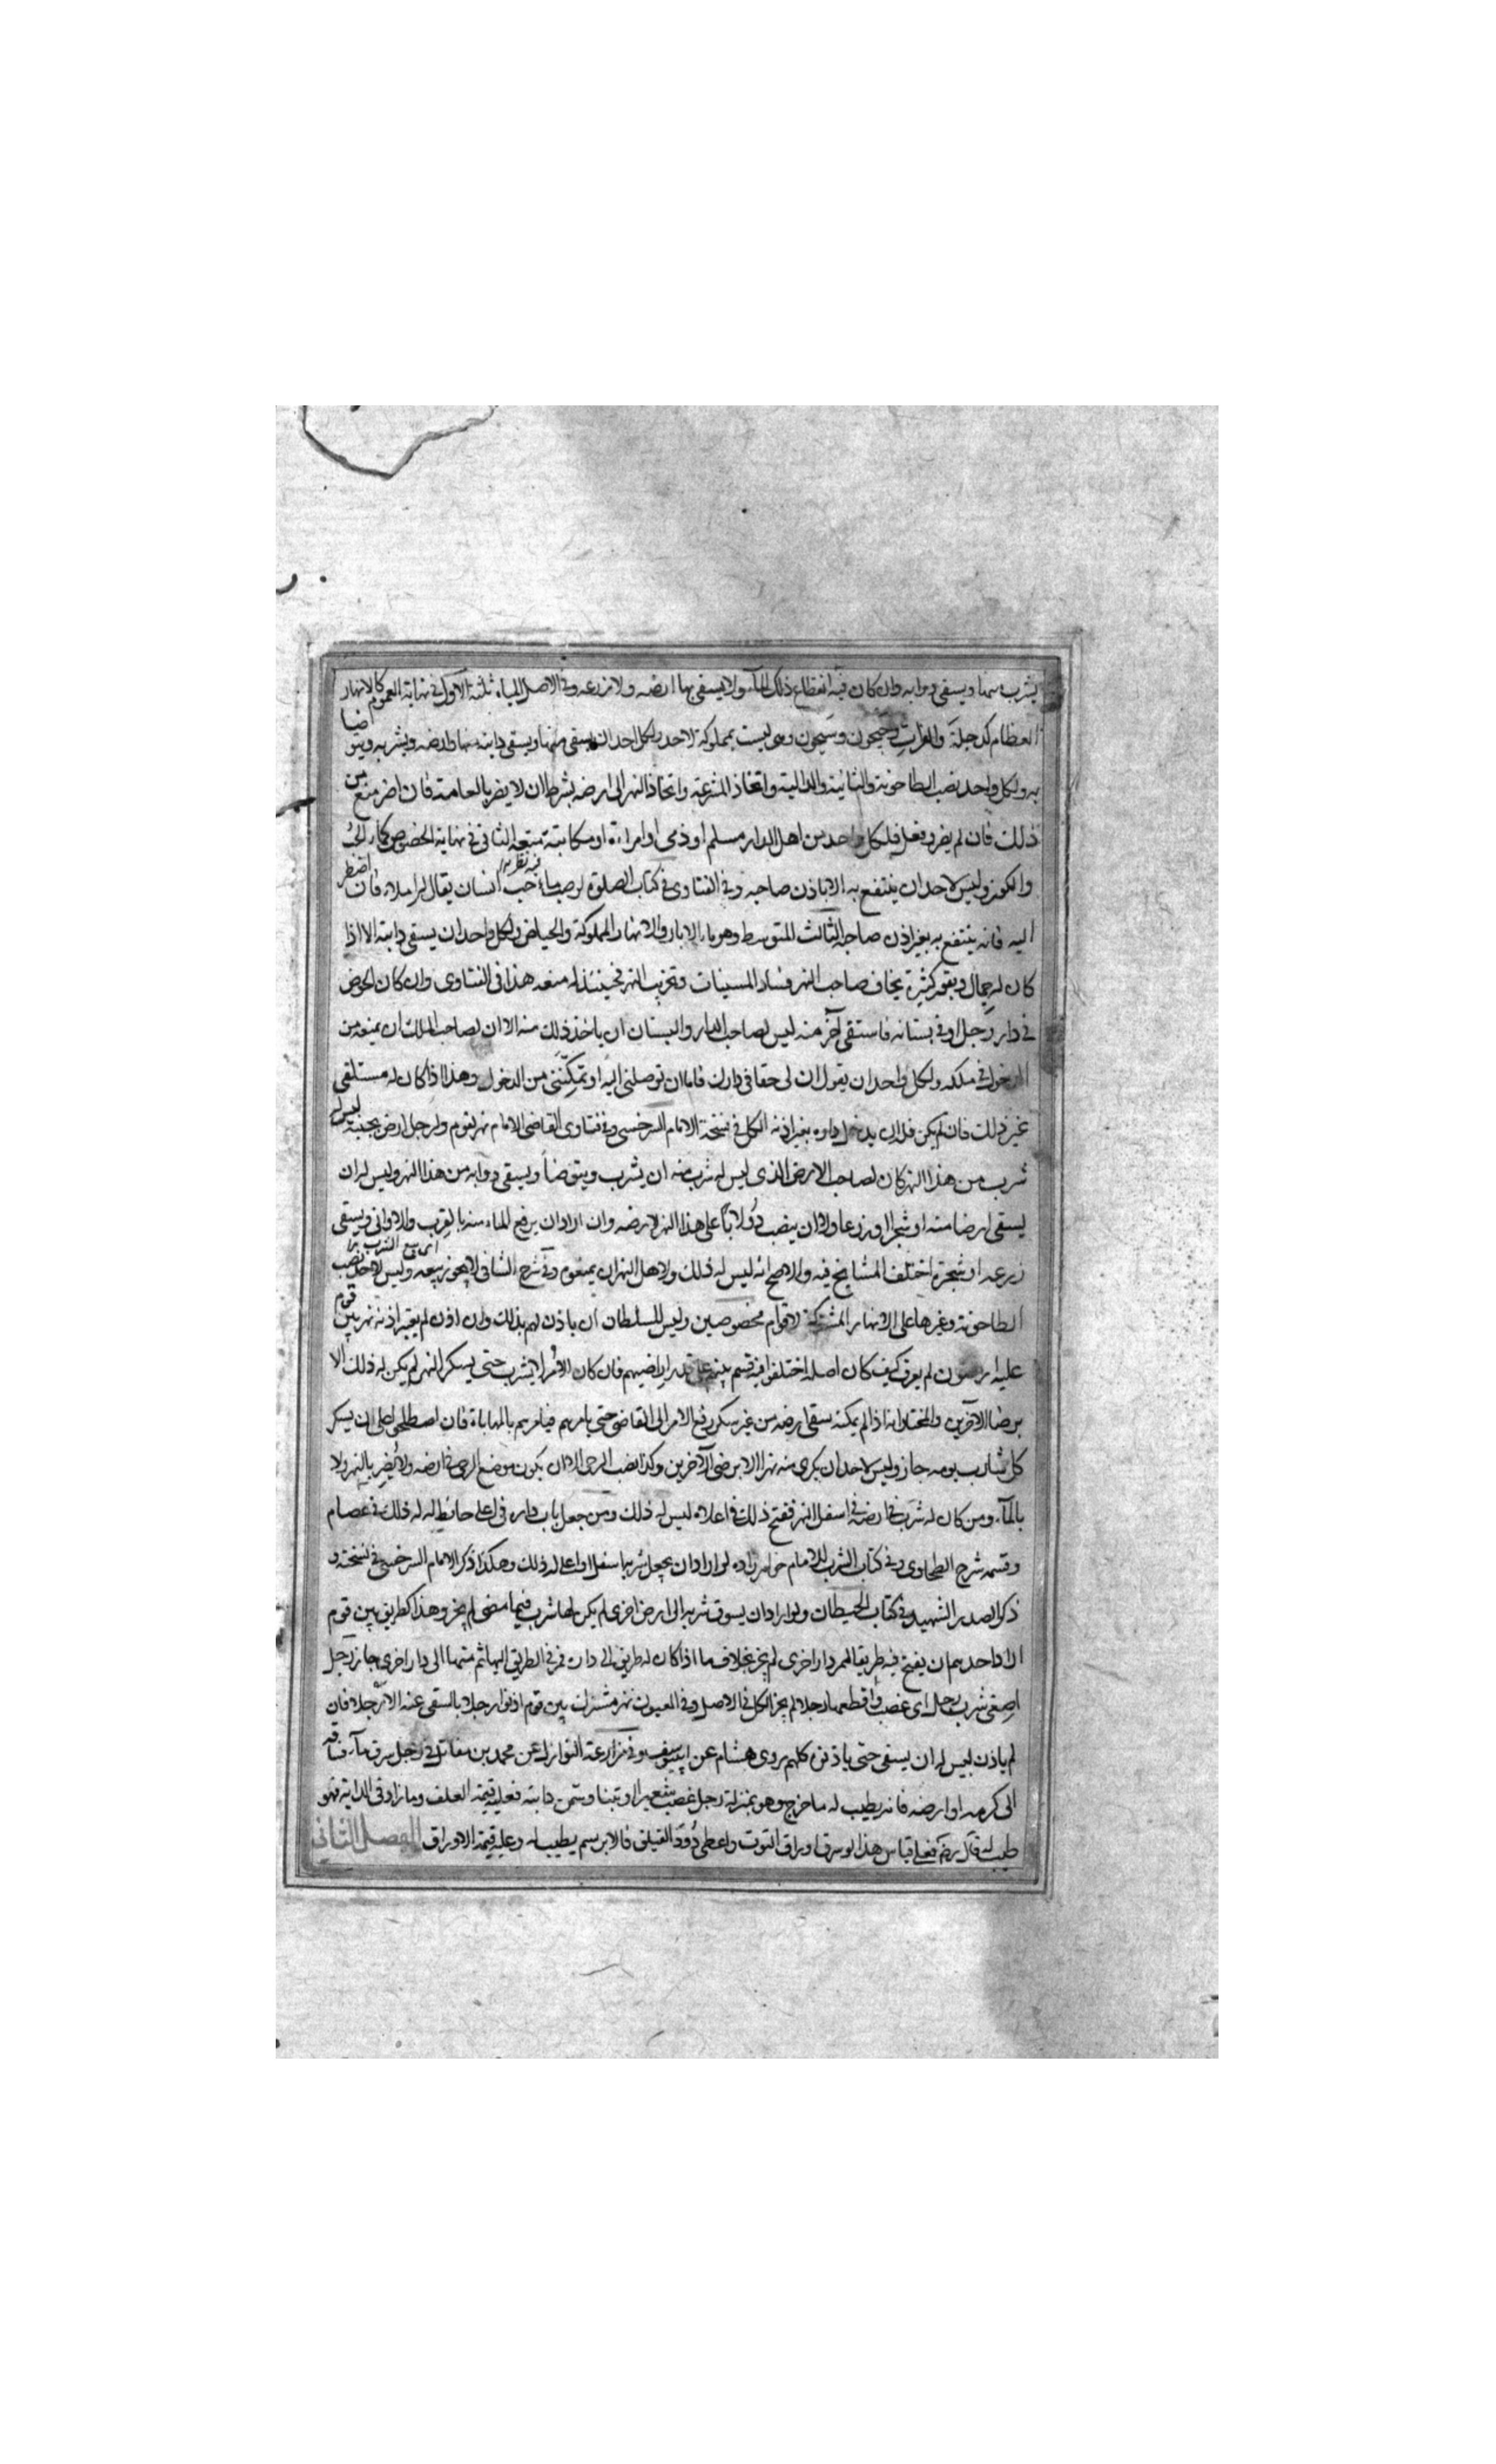 يشرب منها ويسقي دوابه وان كان فيه انقطاع ذلك المآء ولا يسقي بها ارضه ولا زرعه وفي الاصل المياه ثلثة الاول في نهاية العموم كالانهار
العظام كدجلة والفرات وجيحون وسيحون وهي ليست بمملوكة لاحد ولكل احد ان يسقي منها ويسقي دابته منها وارضه ويشربه ويتوضا
به ولكل واحد نصب الطاحونة والسانية والدالية واتخاذ المشرعة واتخاذ النهر الى ارضه بشرط ان لا يضر بالعامة فان اضر منع من
ذلك فان لم يضر وفعل فلكل واحد من اهل الدار مسلم او ذمي او امراءة او مكاتبة منعه الثاني في نهاية الخصوص كماء الحُب
والكوز وليس لاحد ان ينتفع به الا باذن صاحبه وفي الفتاوى في كتاب الصلوة لو صب ماء حب انسان يقال له املاءه فان اضطر
اليه فانه ينتفع به بغير اذن صاحبه الثالث المتوسط وهو ماء الابار والانهار المملوكة والحياض ولكل واحد ان يسقي دابته الا اذا
كان له جمال وبقور كثيرة يخاف صاحب النهر فساد المسينات وتخريب النهر فحينئذ له منعه هذا في الفتاوى وان كان الحوض
في دار رجل او في بستانه فاستقى آخر منه ليس لصاحب الدار والبستان ان ياخذ ذلك منه الا ان لصاحب الملك ان يمنعه من
الدخول في ملكه ولكل واحد ان يقول ان لي حقا في دارك فاما ان توصلني اليه او تمكِّنني من الدخول وهذا اذا كان له مستلقى
غير ذلك فان لم يكن فله ان يدخل داره بغير اذنه الكل في نسخة الامام السرخسي وفي فتاوى القاضي الامام نهر لقوم ولرجل ارض بجنبه ليس له
شرب من هذا النهر كان لصاحب الارض الذي ليس له شرب منه ان يشرب ويتوضأ ويسقي دوابه من هذا النهر وليس له ان
يسقي ارضا منه او شجرا او زرعا ولا ان ينصب دُولابًا على هذا النهر لارضه وان اراد ان يرفع الماء منه بالقرب والاواني ويسقي
زرعه او شجرة اختلف المشايخ فيه والاصح انه ليس له ذلك ولاهل النهر ان يمنعوه وفي شرح الشافي لا يجوز بيعه وليس لاحد نصب
اى بيع الشرب
الطاحونة وغيرها على الانهار المشتركة لاقوام مخصوصين وليس للسلطان ان ياذن لهم بذلك وان اذن لم يعتبر اذنه نهر بين قوم
عليه ارضون لم يعرف كيف كان اصله اختلفوا فيه قسم بينهم على قدر اراضيهم فان كان الا لا يشرب حتى يسكر النهر لم يكن له ذلك الا
برضا الآخرين والمختار انه اذا لم يمكنه سقي ارضه من غير سكر رفع الامر الى القاضي حتى يامرهم فيامرهم بالمهاياة فان اصطلحوا على ان يسكر
كل شارب يومه جاز وليس لاحد ان يكري منه نهرا الا برضى الآخرين وكذا نصب الرحى الا ان يكون موضع الرحى في ارضه ولا يُضر بالنهر ولا
بالمآء ومن كان له شرب في ارضه في اسفل النهر ففتح ذلك في اعلاه ليس له ذلك ومن جعل باب داره في اعلى حائط له له ذلك في عصام
وقسمه شرح الطحاوي وفي كتاب الشرب للامام خواهر زاده لو اراد ان يجعل شربها اسفل او اعلى له ذلك وهكذا ذكر الامام السرخسي في نسخته و
ذكر الصدر الشهيد في كتاب الحيطان ولو اراد ان يسوق شربه الى ارض اخرى لم يكن لها شرب فيما مضى لم يجز وهذا كطريق بين قوم
اراد احدهم ان يفتح فيه طريقا لممر دار اخرى لم يجز بخلاف ما اذا كان له طريق الى داره فمر في الطريق اليها ثم منها الى دار اخرى جاز رجل
اصفى شرب رجل اى غصب واقطعها رجلا لم يجز الكل في الاصل وفي العيون نهر مشترك بين قوم اذنوا رجلا بالسقي عنه الا رجلا فان
لم ياذن ليس له ان يسقي حتى ياذنوه كلهم روى هشام عن ابي يوسف وفي مزارعة النوازل عن محمد بن مقاتل في رجل سرق مآء فساقه
الى كرمه او ارضه فانه يطيب له ما خرج وهو بمنزلة رجل غصب شعيرا او تبنا وسمن دابته فعليه قيمة العلف وما زاد في الدابة فهو
طيب له قال رضه فعلى قياس هذا لو سرق اوراق التوت واعطى دُودَ الفيلق فالابريسم يطيب له وعليه قيمة الاوراق الفصل الثاني